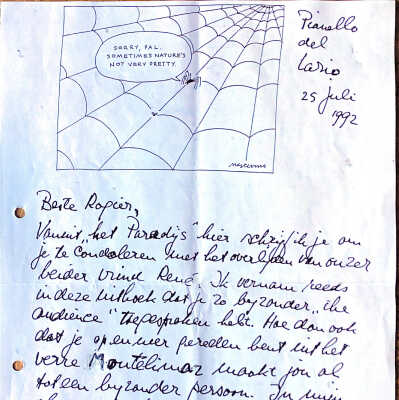 SORRY, PAL.
SOMETIMES NATURE'S
NOT VERY PRETTY.
Pianello
del
Lario
25 juli
1992
Beste Rogier,
Vanuit „het Paradijs" hier schrijf ik je om
je te condoleren met het overlijden van onzer
beider vriend René. Ik vernam reeds
in deze uithoek dat je zo byzonder „the
audience" toegesproken hebt. Hoe dan ook
dat je op en neer gereden bent uit het
verre Montélimar maakt jou al
tot een byzonder persoon. In mijn